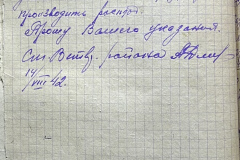 производить
Прошу Вашего указания.
См. Ветвр. района
14/VIII 42.